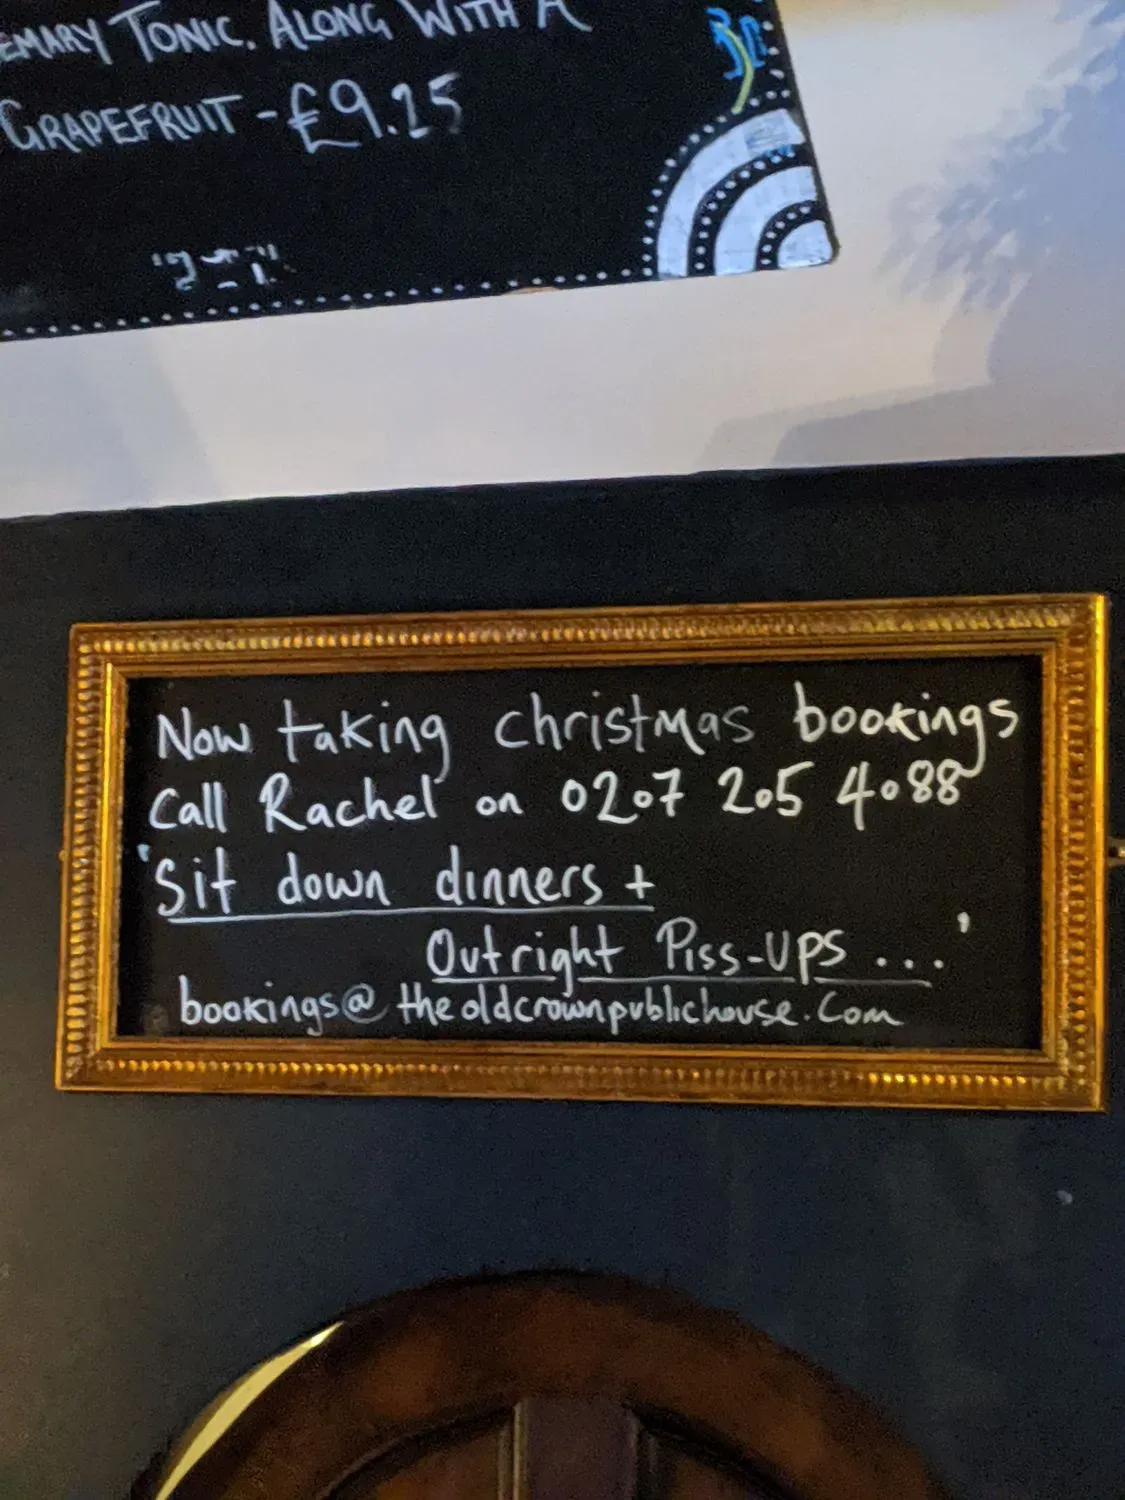 TONIC. ALONG WITH A
GRAPEFRUIT - £9.25
Now taking christmas bookings
Call Rachel on 0207 205 4088
'Sit down dinners +
Outright Piss-ups ...'
bookings@theoldcrownpublichouse.com